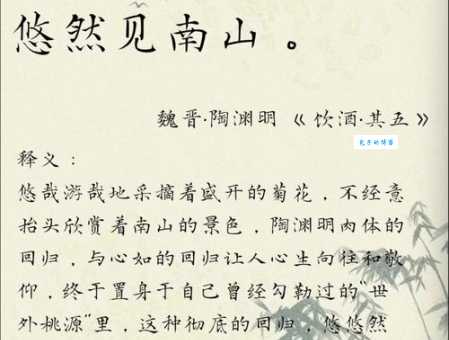 悠然见南山。
魏晋·陶渊明《饮酒·其五》
孔子的博客
释义：
悠哉游哉地采摘着盛开的菊花，不经意
抬头欣赏着南山的景色，陶渊明肉体的
回归，与心如的回归让人心生向往和敬
仰，终于置身于自己曾经勾勒过的“世
外桃源”里，这种彻底的回归，悠悠然